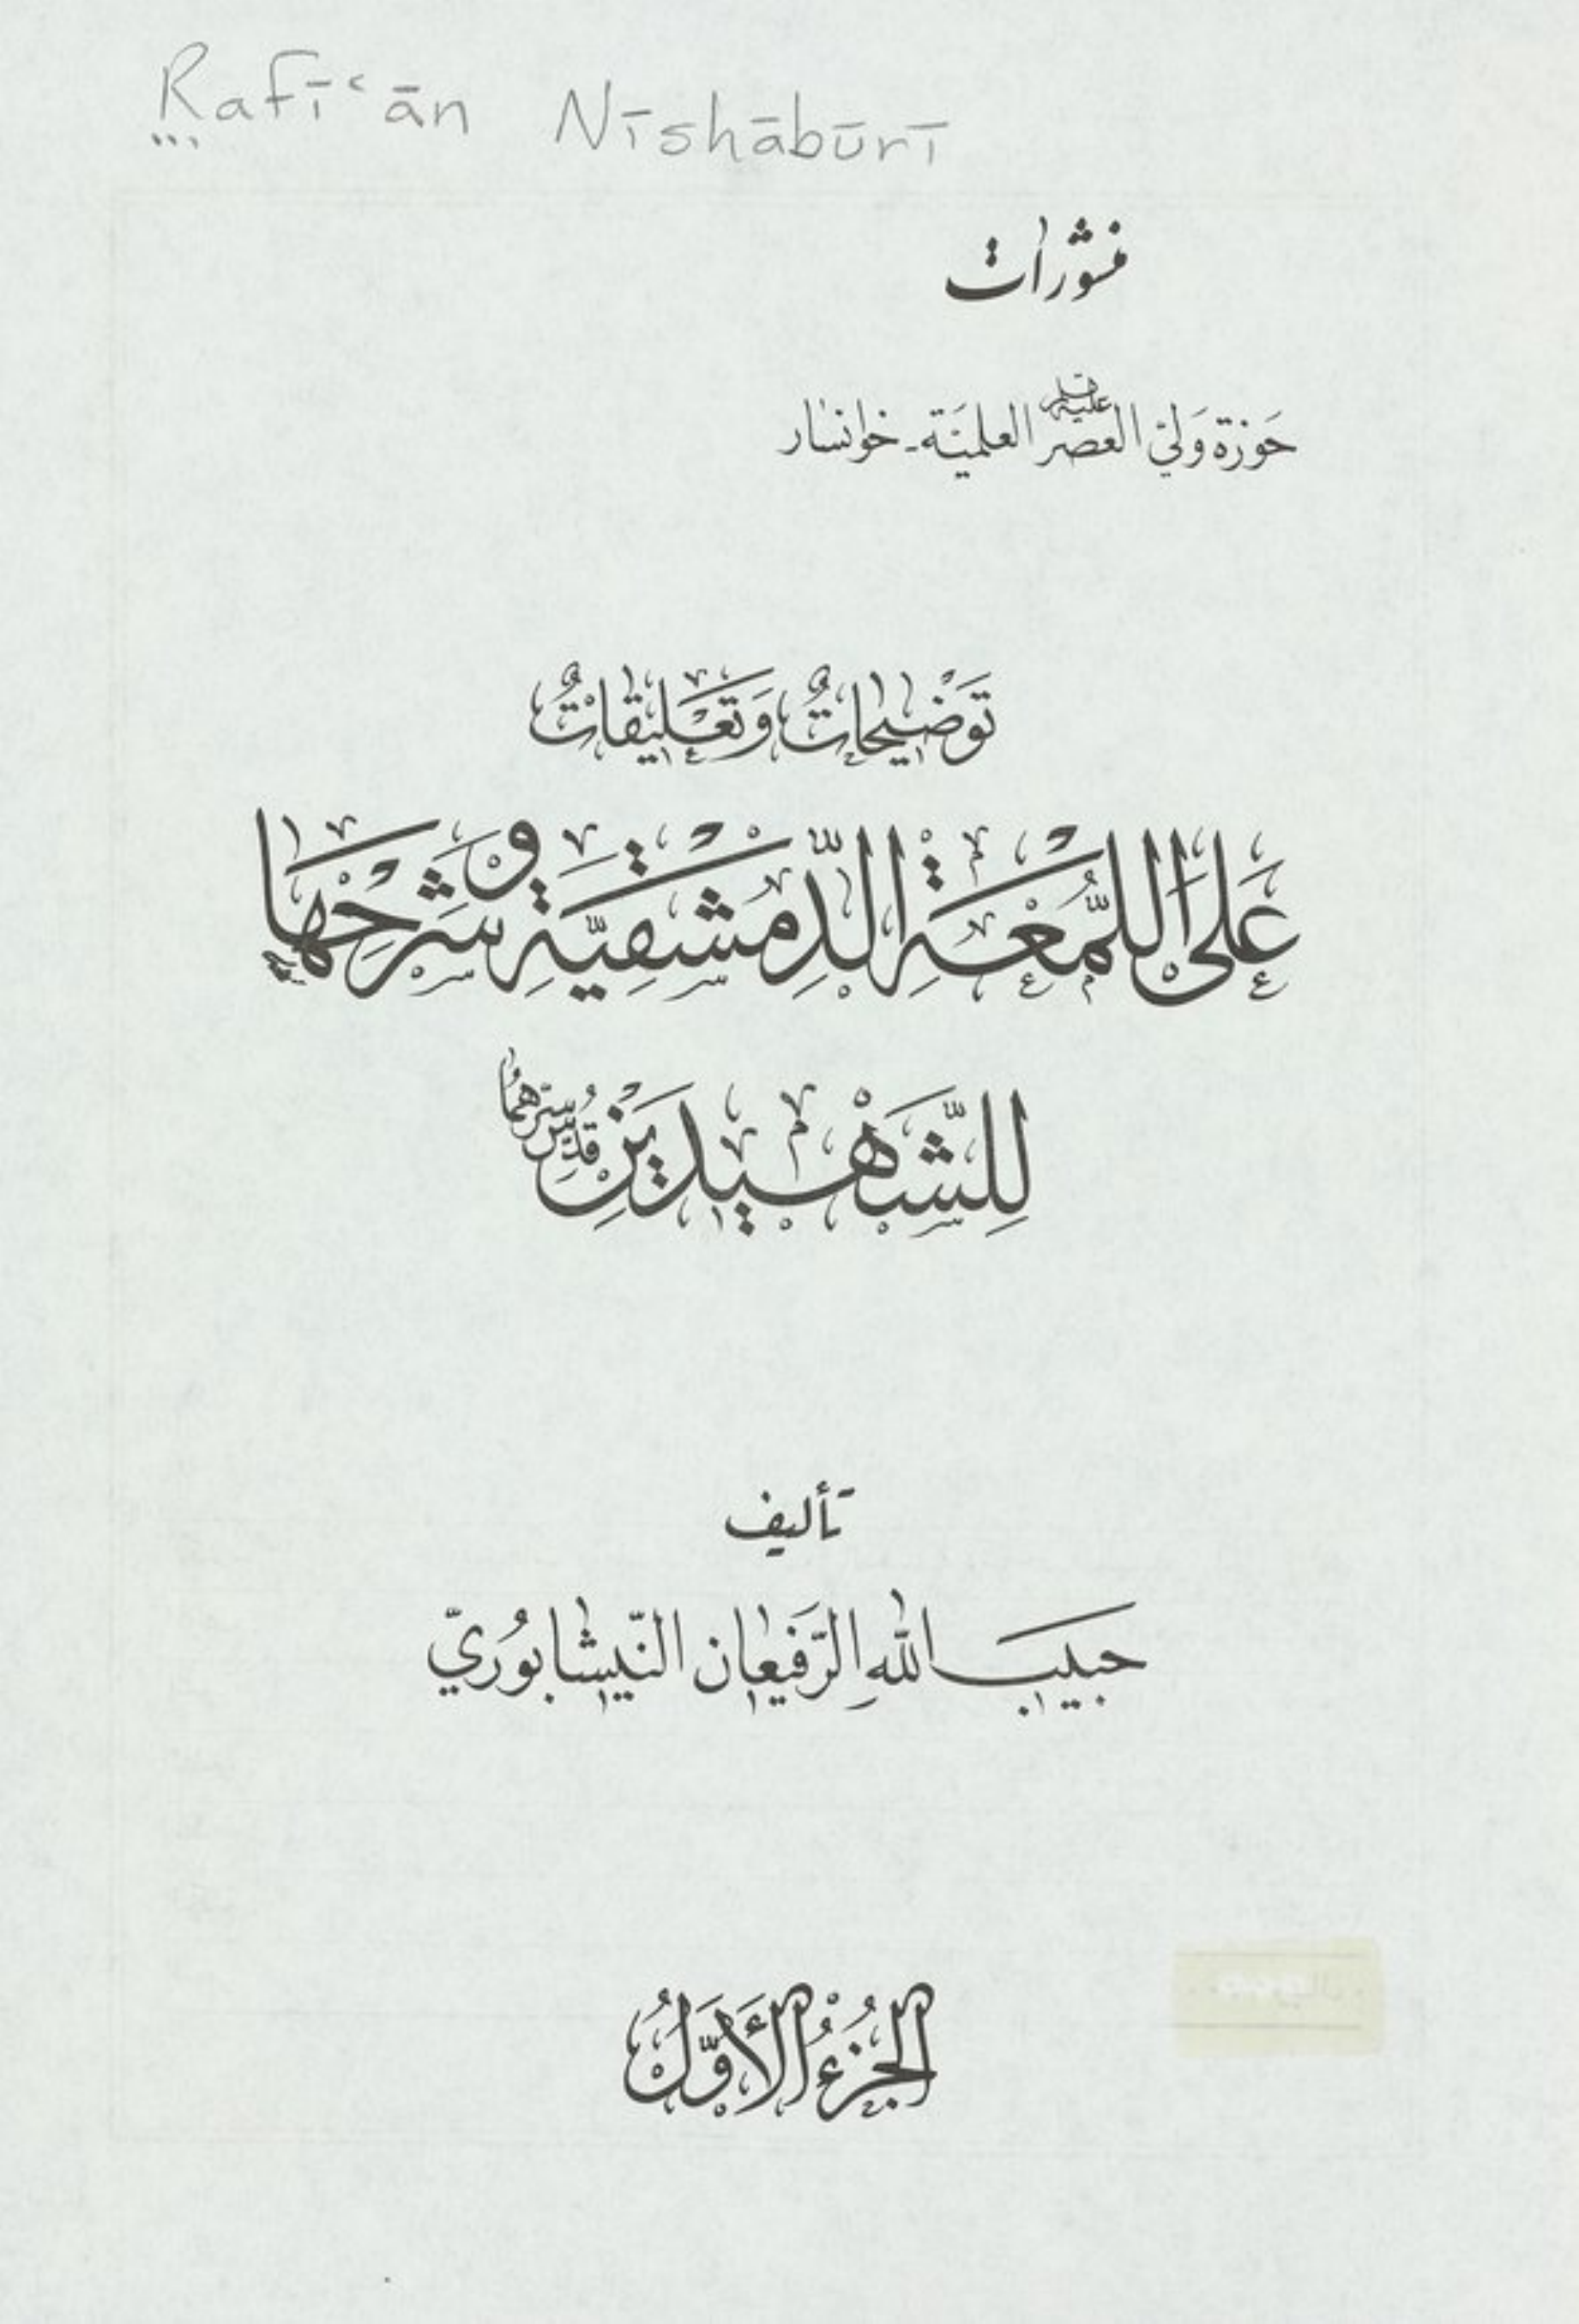 Rafīʿān Nīshābūrī
منشورات
حَوزة وَليّ العصر العلميّة ـ خوانسار
تَوْضيحاتٌ وَتَعْليقاتٌ
عَلَى اللُّمْعَةِ الدِّمَشْقِيَّةِ وَشَرْحِهَا
لِلشَّهْيدَيْنِ قُدِّسَ سِرُّهُما
تأليف
حبيبَ اللهِ الرَّفيعان النّيشابوُريّ
الجُزْءُ الأَوَّلُ